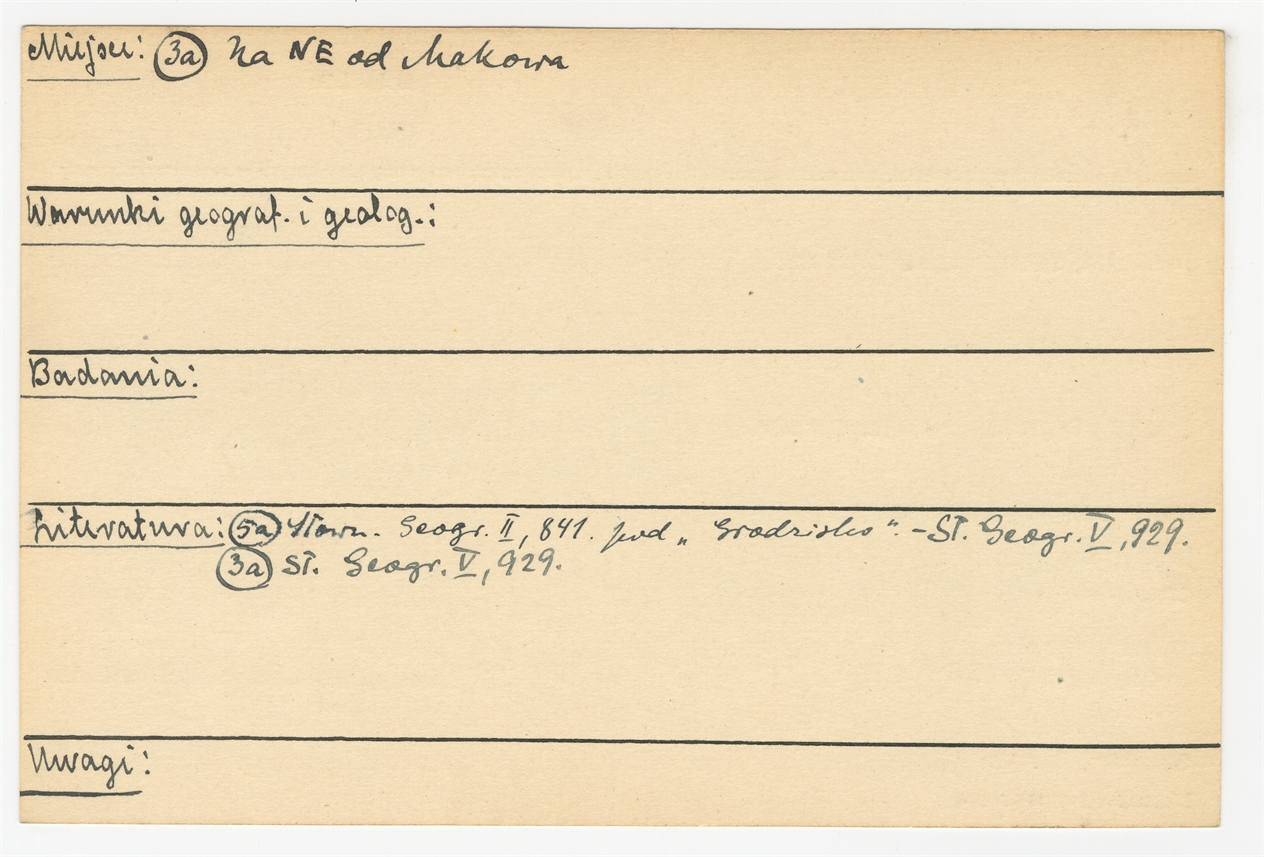 Miejsce: 3a Na NE od Makowa
Warunki geograf. i geolog.:
Badania:
Literatura: 5a Słown. Geogr. II, 841. pod „Grodzisko". - Sł. Geogr. V, 929.
3a Sł. Geogr. V, 929.
Uwagi: